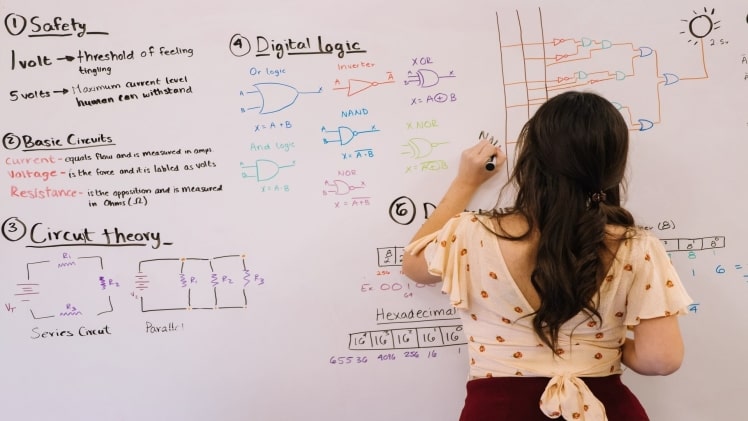 ① Safety
1 volt → threshold of feeling
tingling
5 volts → Maximum current level
human can withstand
② Basic Circuits
Current - equals flow and is measured in amps
Voltage - is the force and it is labled as volts
Resistance - is the opposition and is measured
in Ohms (Ω)
③ Circut theory
R1
R2
R3
VT
Series Circut
R1
R2
R3
Parallel
④ Digital logic
Or logic
A
B
X
X = A + B
Inverter
A
A̅
XOR
A
B
X
X = A ⊕ B
And logic
X = A·B
NAND
A
B
X
X = A·B
NOR
X = A+B
X NOR
X = A⊕B
2.5v
⑤ D
Ex. 00
Hexadecimal
16⁴ 16³ 16² 16¹ 16⁰
65536 4096 256 16 1
(8)
8⁰
8
1
6 =
4